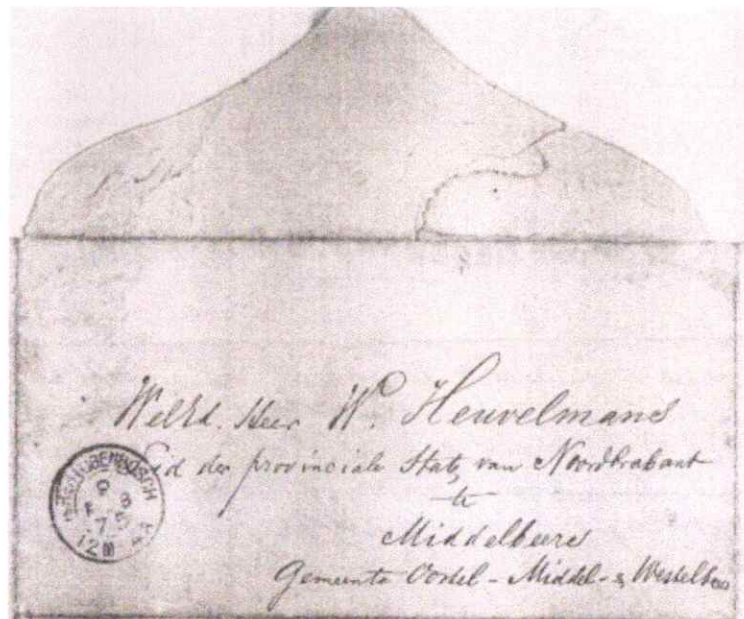 WelEd. Heer Wd. Heuvelmans
Lid der provinciale Staten van Noordbrabant
te
Middelbeers
Gemeente Oostel- Middel- & Westelbeers
12M